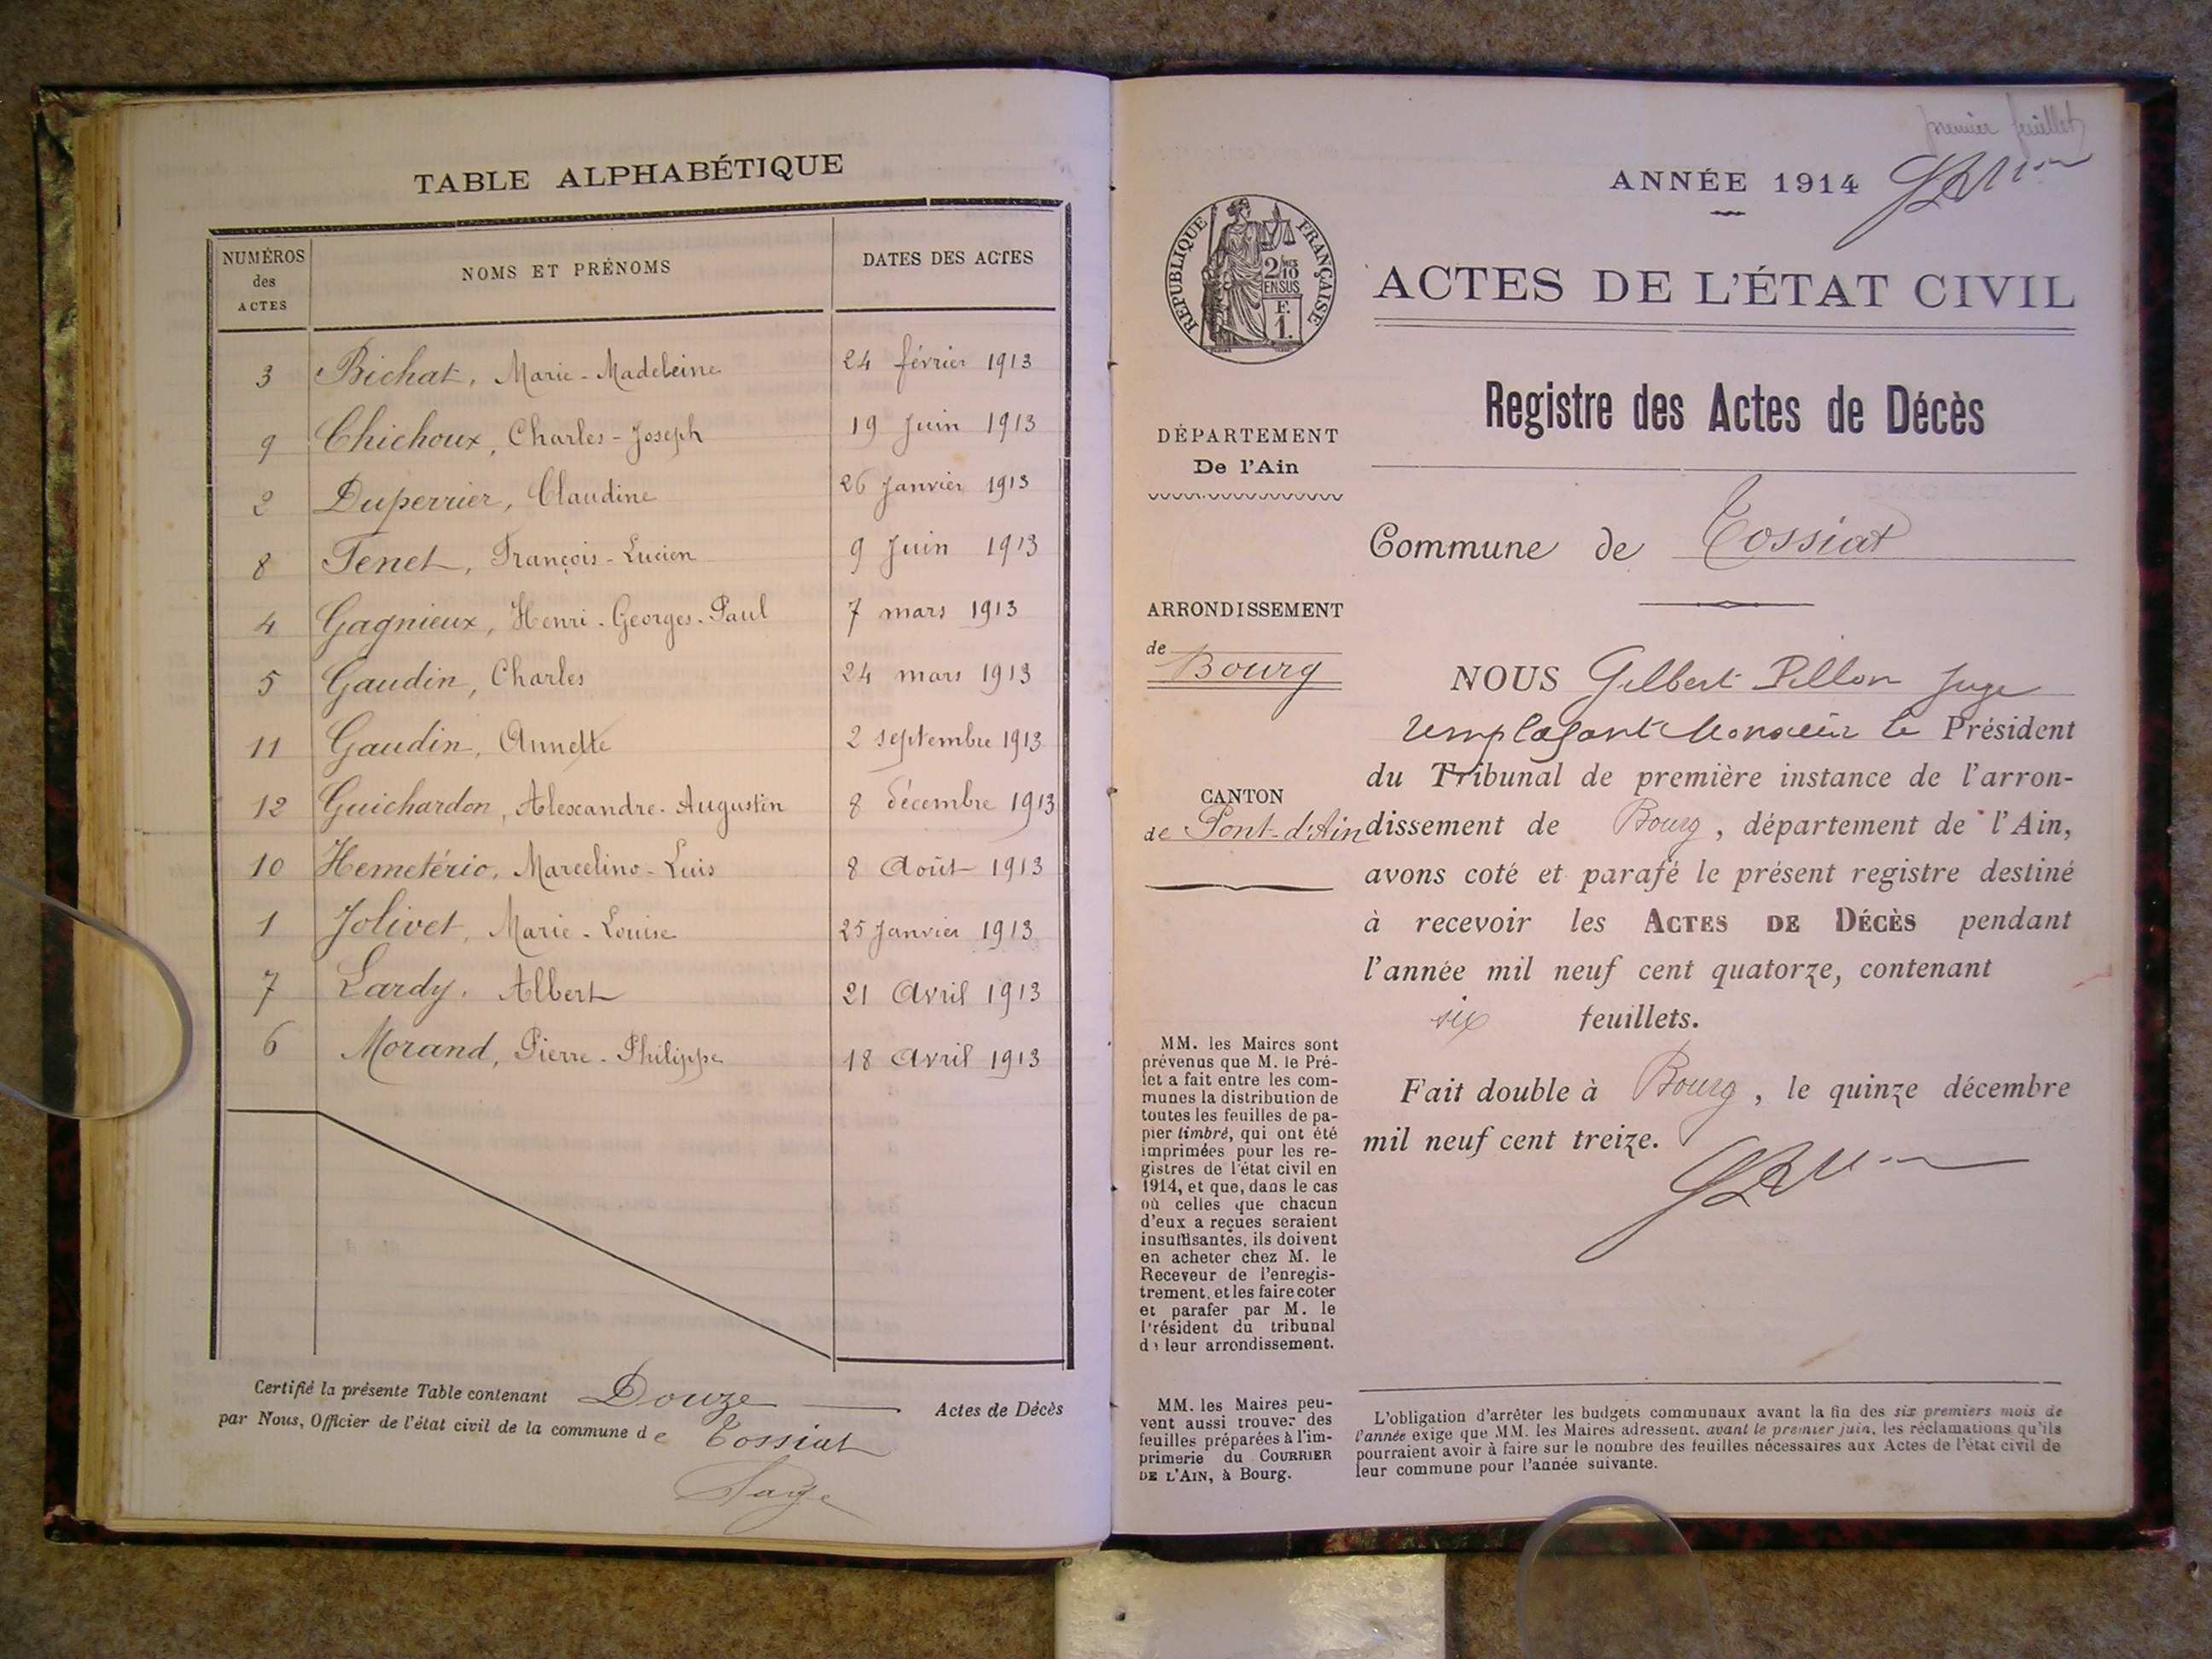 TABLE ALPHABÉTIQUE
NUMÉROS
des
ACTES
NOMS ET PRÉNOMS
DATES DES ACTES
3 Bichat, Marie-Madeleine 24 février 1913
9 Chichoux, Charles-Joseph 19 Juin 1913
2 Duperrier, Claudine 26 Janvier 1913
8 Fenet, François-Lucien 9 Juin 1913
4 Gagnieux, Henri-Georges-Paul 7 mars 1913
5 Gaudin, Charles 24 mars 1913
11 Gaudin, Annette 2 septembre 1913
12 Guichardon, Alexandre-Augustin 8 décembre 1913
10 Hemetério, Marcelino-Luis 8 Août 1913
1 Jolivet, Marie-Louise 25 Janvier 1913
7 Lardy, Albert 21 Avril 1913
6 Morand, Pierre-Philippe 18 Avril 1913
Certifié la présente Table contenant Douze Actes de Décès
par Nous, Officier de l'état civil de la commune de Tossiat
premier feuillet
ANNÉE 1914
RÉPUBLIQUE FRANÇAISE
2/10
EN SUS
F.
1.
ACTES DE L'ÉTAT CIVIL
Registre des Actes de Décès
DÉPARTEMENT
De l'Ain
Commune de Tossiat
ARRONDISSEMENT
de Bourg
CANTON
de Pont-d'Ain
NOUS Gilbert Pillon Juge
remplaçant Monsieur le Président
du Tribunal de première instance de l'arron-
dissement de Bourg, département de l'Ain,
avons coté et parafé le présent registre destiné
à recevoir les ACTES DE DÉCÈS pendant
l'année mil neuf cent quatorze, contenant
six feuillets.
Fait double à Bourg, le quinze décembre
mil neuf cent treize.
MM. les Maires sont
prévenus que M. le Pré-
fet a fait entre les com-
munes la distribution de
toutes les feuilles de pa-
pier timbré, qui ont été
imprimées pour les re-
gistres de l'état civil en
1914, et que, dans le cas
où celles que chacun
d'eux a reçues seraient
insuffisantes, ils doivent
en acheter chez M. le
Receveur de l'enregis-
trement, et les faire coter
et parafer par M. le
Président du tribunal
de leur arrondissement.
MM. les Maires peu-
vent aussi trouver des
feuilles préparées à l'im-
primerie du COURRIER
DE L'AIN, à Bourg.
L'obligation d'arrêter les budgets communaux avant la fin des six premiers mois de
l'année exige que MM. les Maires adressent, avant le premier juin, les réclamations qu'ils
pourraient avoir à faire sur le nombre des feuilles nécessaires aux Actes de l'état civil de
leur commune pour l'année suivante.